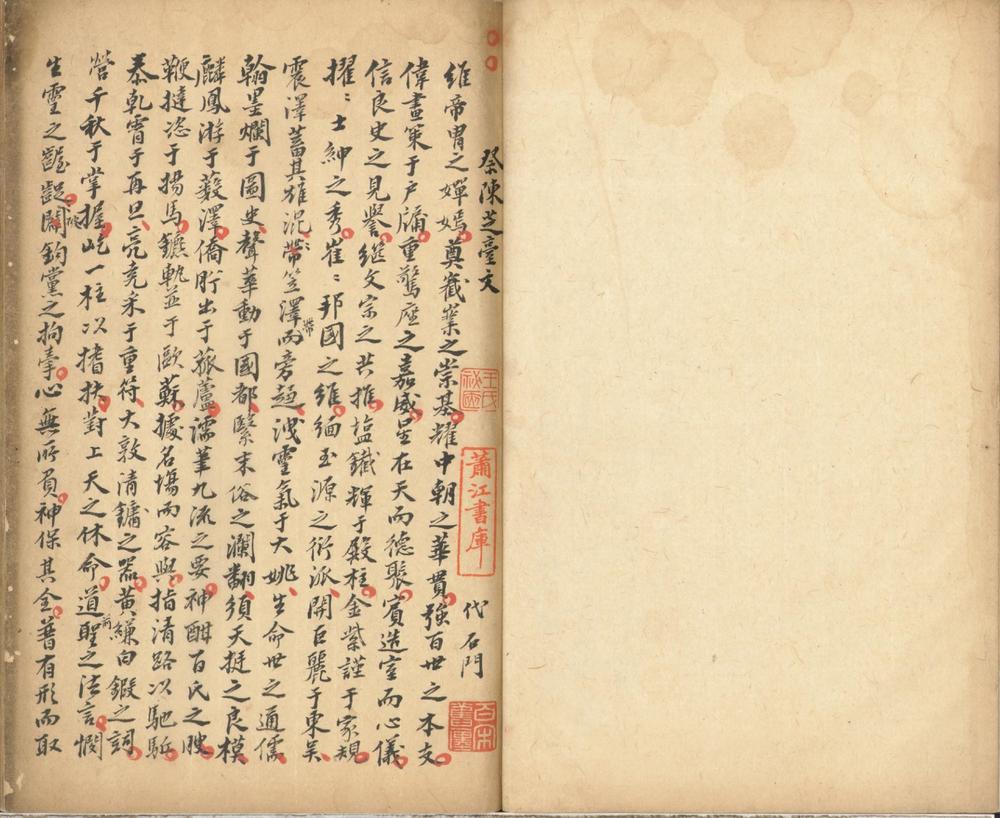 祭陳芝臺文
代石門
維帝胄之嬋嫣奠嶻嶪之崇基耀中朝之華貫強百世之本支
偉畫策于戶牖重驚座之嘉威星在天而德聚賓造室而心儀
信良史之見譽繼文宗之共推鹽鐵輝于殿柱金紫謹于家規
擢〻士紳之秀崔〻邦國之維緬玉源之衍派開巨麗于東吳
震澤蓄其雄混帶笠澤而旁趨洩靈氣于大姚生命世之通儒
翰墨爛于圖史聲華動于國都繄末俗之瀾翻須天挺之良模
麟鳳游于藪澤僑肸出于菰蘆濡筆九流之要神酣百氏之腴
鞭撻恣于揚馬鑣軌並于歐蘇據名場而容與指清路以馳驅
泰乾霄于再旦亮堯采于重符大敦清鏞之器黃縑白鍛之詞
營千秋于掌握屹一柱以搘扶對上天之休命道聖之法言憫
生靈之齷齪闢鈎黨之拘牽心無所負神保其全昔有形而取
蕭江書庫
王氏